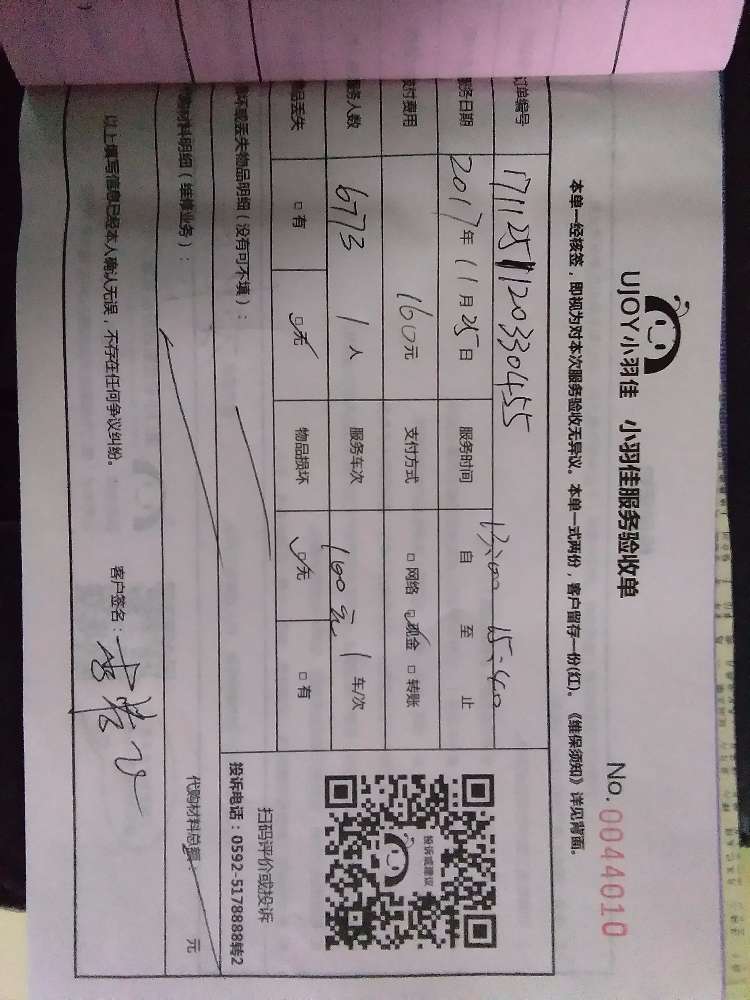 UJOY小羽佳 小羽佳服务验收单
No. 0044010
本单一经核签，即视为对本次服务验收无异议。本单一式两份，客户留存一份(红)。《维保须知》详见背面。
订单编号 171125112033045
服务日期 2017年 11月 25日 服务时间 13:00 自 15:40 至 止
支付费用 160元 支付方式 □网络 ☑现金 □转账
服务人数 6773 1人 服务车次 100元 1车/次
物品丢失 □有 ☑无 物品损坏 ☑无 □有
损坏或丢失物品明细（没有可不填）：
代购材料明细（维修业务）：
代购材料总额： 元
以上填写信息已经本人确认无误，不存在任何争议纠纷。
客户签名：
投诉或建议
扫码评价或投诉
投诉电话：0592-5178888转2